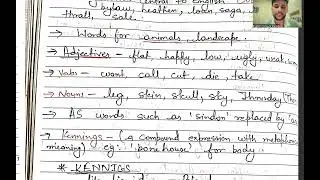 central to English
bylaw, heathen, loan, saga,
thrall, sale.
→ Words for animals, landscape.
→ Adjectives - flat, happy, low, ugly, weak,
→ Verbs - want, call, cut, die, take.
→ Noun - leg, skin, skull, sky, Thursday
→ AS words such as 'sindon' replaced by
→ Kennings - (a compound expression with metaphorical
meaning). eg: 'bone house' for body.
* KENNIGS